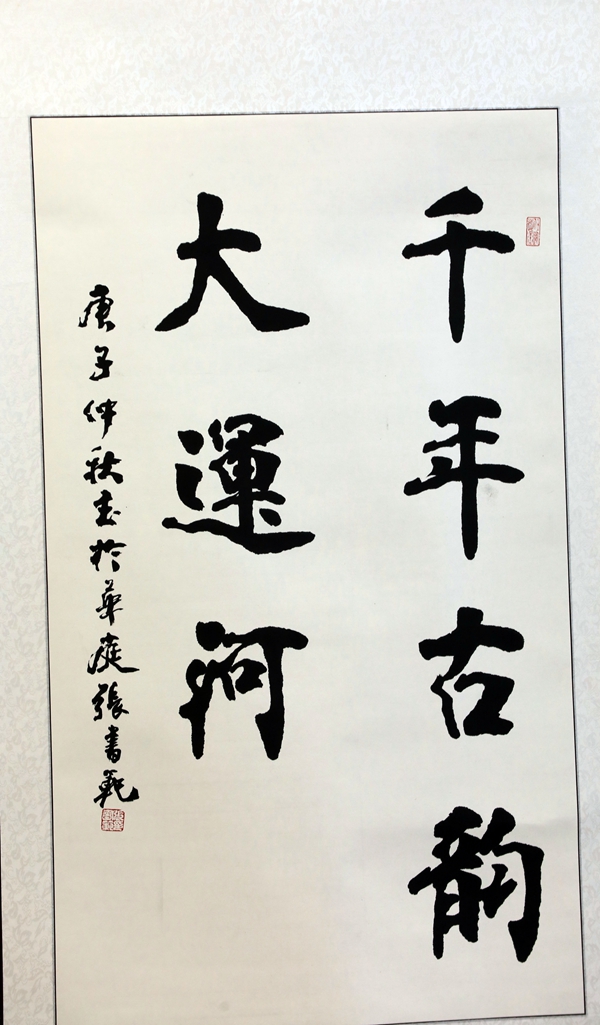 千年古韵
大運河
庚子仲秋书於華庭張書範